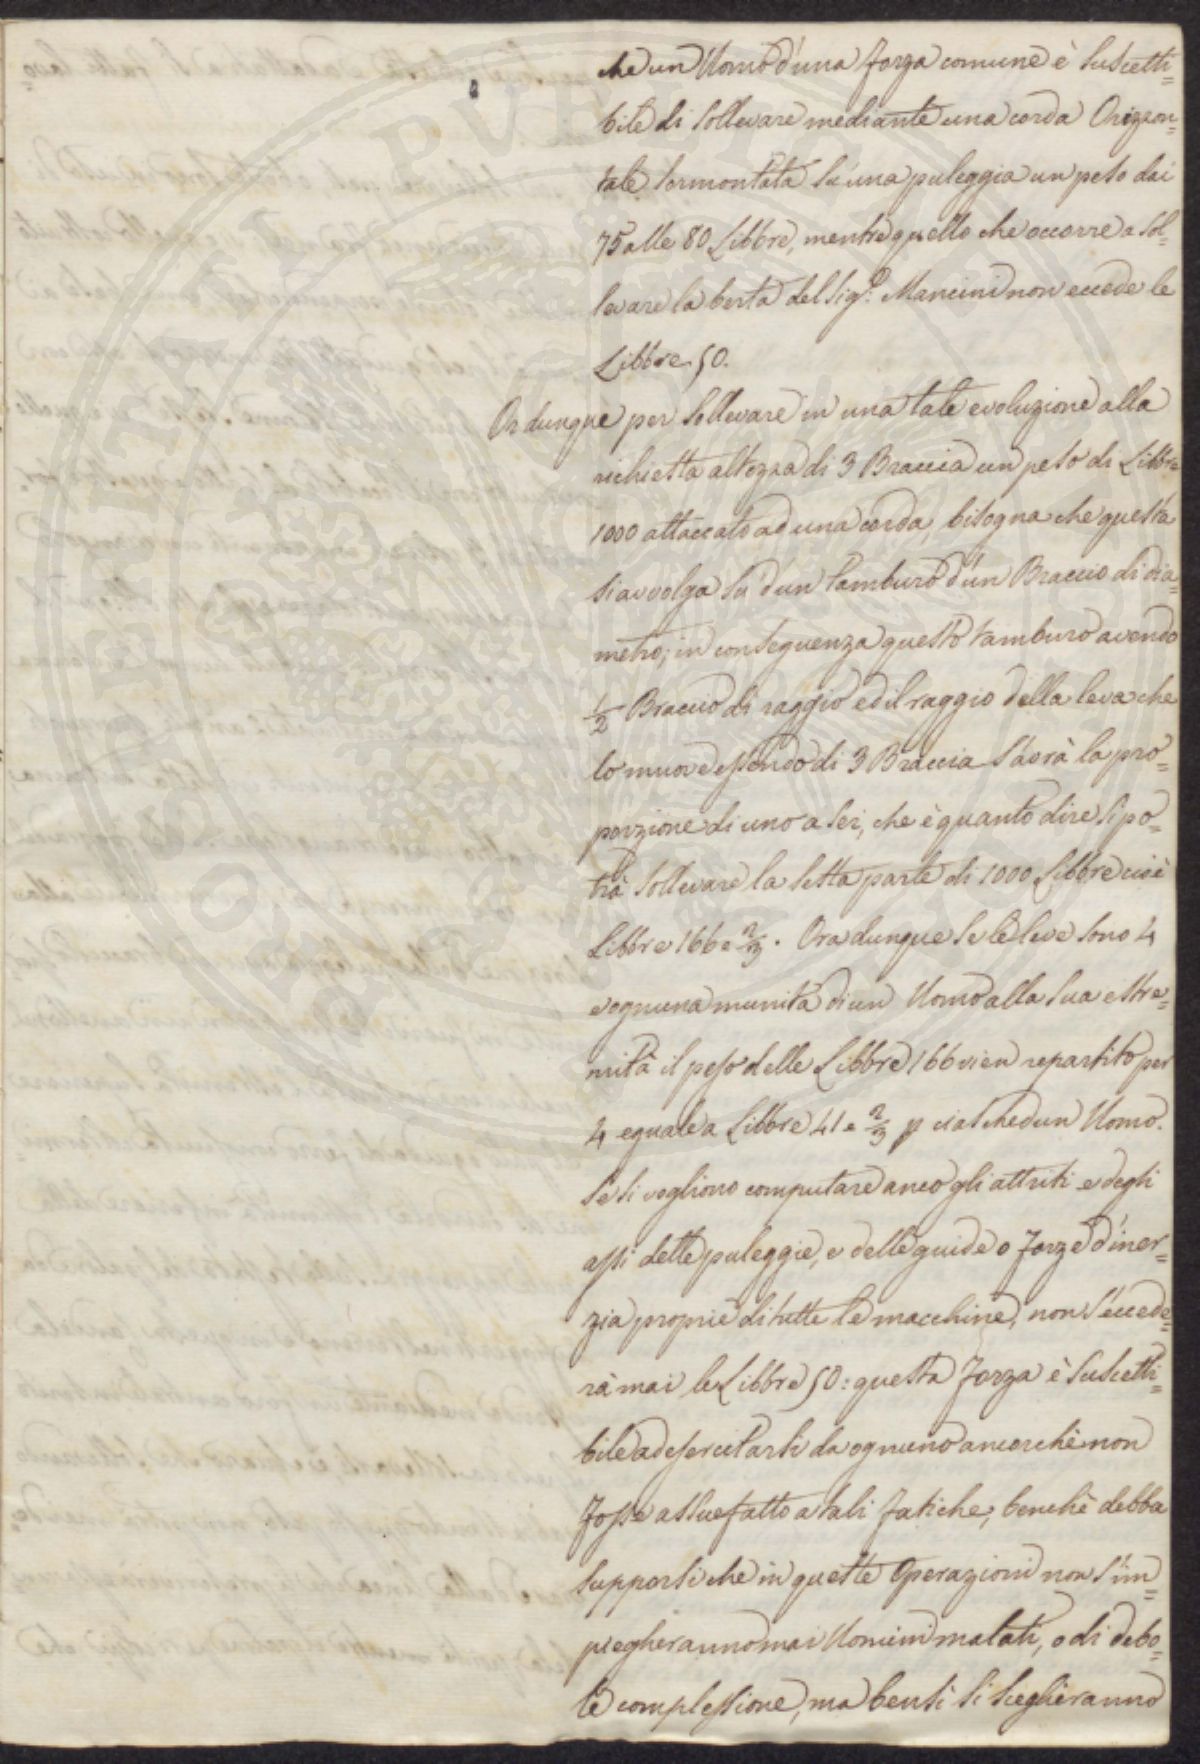 che un Uomo d'una forza comune è suscetti=
bile di sollevare mediante una corda Orizzon=
tale sormontata su una puleggia un peso dai
75 alle 80 Libbre, mentre quello che occorre a sol=
levare la berta del Sig.e Mancini non eccede le
Libbre 50.
Or dunque per sollevare in una tale evoluzione alla
richiesta altezza di 3 Braccia un peso di Libbre
1000 attaccato ad una corda, bisogna che questa
si avvolga su d'un tamburo d'un Braccio di dia=
metro; in conseguenza questo tamburo avendo
1/2 Braccio di raggio ed il raggio della leva che
lo muove essendo di 3 Braccia s'avrà la pro=
porzione di uno a sei, che è quanto dire si po=
trà sollevare la sesta parte di 1000 Libbre cioè
Libbre 166 e 2/3. Ora dunque se le leve sono 4
e ognuna munita di un Uomo alla sua estre=
mità il peso delle Libbre 166 vien repartito per
4 eguale a Libbre 41 e 2/3 p ciaschedun Uomo.
Se si vogliono computare anco gli attriti e degli
assi delle puleggie, e delle guide o forze d'iner=
zia proprie di tutte le macchine, non s'eccede=
rà mai le Libbre 50: questa forza è suscetti=
bile ad esercitarsi da ognuno ancorchè non
fosse assuefatto a tali fatiche, benchè debba
supporsi che in queste Operazioni non s'im=
piegheranno mai Uomini malati, o di debo=
le complessione, ma bensì si sceglieranno